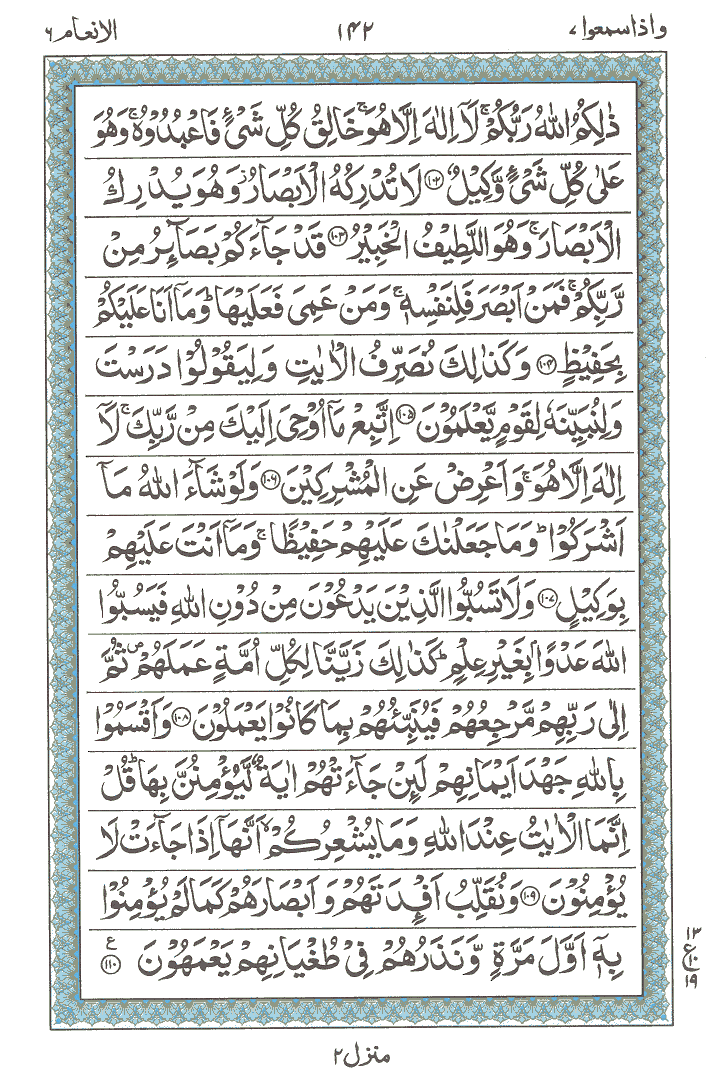 واذاسمعوا ٧ ١٤٢ الانعام ٦
ذٰلِكُمُ اللّٰهُ رَبُّكُمْ ۚ لَاۤ اِلٰهَ اِلَّا هُوَ ۚ خَالِقُ كُلِّ شَیْءٍ فَاعْبُدُوْهُ ۚ وَهُوَ
عَلٰی كُلِّ شَیْءٍ وَّكِیْلٌ ﴿١٠٢﴾ لَا تُدْرِكُهُ الْاَبْصَارُ ؗ وَهُوَ یُدْرِكُ
الْاَبْصَارَ ۚ وَهُوَ اللَّطِیْفُ الْخَبِیْرُ ﴿١٠٣﴾ قَدْ جَآءَكُمْ بَصَآىِٕرُ مِنْ
رَّبِّكُمْ ۚ فَمَنْ اَبْصَرَ فَلِنَفْسِهٖ ۚ وَمَنْ عَمِیَ فَعَلَیْهَا ؕ وَمَاۤ اَنَا عَلَیْكُمْ
بِحَفِیْظٍ ﴿١٠٤﴾ وَكَذٰلِكَ نُصَرِّفُ الْاٰیٰتِ وَلِیَقُوْلُوْا دَرَسْتَ
وَلِنُبَیِّنَهٗ لِقَوْمٍ یَّعْلَمُوْنَ ﴿١٠٥﴾ اِتَّبِعْ مَاۤ اُوْحِیَ اِلَیْكَ مِنْ رَّبِّكَ ۚ لَاۤ
اِلٰهَ اِلَّا هُوَ ۚ وَاَعْرِضْ عَنِ الْمُشْرِكِیْنَ ﴿١٠٦﴾ وَلَوْ شَآءَ اللّٰهُ مَاۤ
اَشْرَكُوْا ؕ وَمَا جَعَلْنٰكَ عَلَیْهِمْ حَفِیْظًا ۚ وَمَاۤ اَنْتَ عَلَیْهِمْ
بِوَكِیْلٍ ﴿١٠٧﴾ وَلَا تَسُبُّوا الَّذِیْنَ یَدْعُوْنَ مِنْ دُوْنِ اللّٰهِ فَیَسُبُّوا
اللّٰهَ عَدْوًۢا بِغَیْرِ عِلْمٍ ؕ كَذٰلِكَ زَیَّنَّا لِكُلِّ اُمَّةٍ عَمَلَهُمْ ۪ ثُمَّ
اِلٰی رَبِّهِمْ مَّرْجِعُهُمْ فَیُنَبِّئُهُمْ بِمَا كَانُوْا یَعْمَلُوْنَ ﴿١٠٨﴾ وَاَقْسَمُوْا
بِاللّٰهِ جَهْدَ اَیْمَانِهِمْ لَىِٕنْ جَآءَتْهُمْ اٰیَةٌ لَّیُؤْمِنُنَّ بِهَا ؕ قُلْ
اِنَّمَا الْاٰیٰتُ عِنْدَ اللّٰهِ وَمَا یُشْعِرُكُمْ ۙ اَنَّهَاۤ اِذَا جَآءَتْ لَا
یُؤْمِنُوْنَ ﴿١٠٩﴾ وَنُقَلِّبُ اَفْـِٕدَتَهُمْ وَاَبْصَارَهُمْ كَمَا لَمْ یُؤْمِنُوْا
بِهٖۤ اَوَّلَ مَرَّةٍ وَّنَذَرُهُمْ فِیْ طُغْیَانِهِمْ یَعْمَهُوْنَ ﴿١١٠﴾ ع
١٣
ع ١٠
١٩
منزل ٢